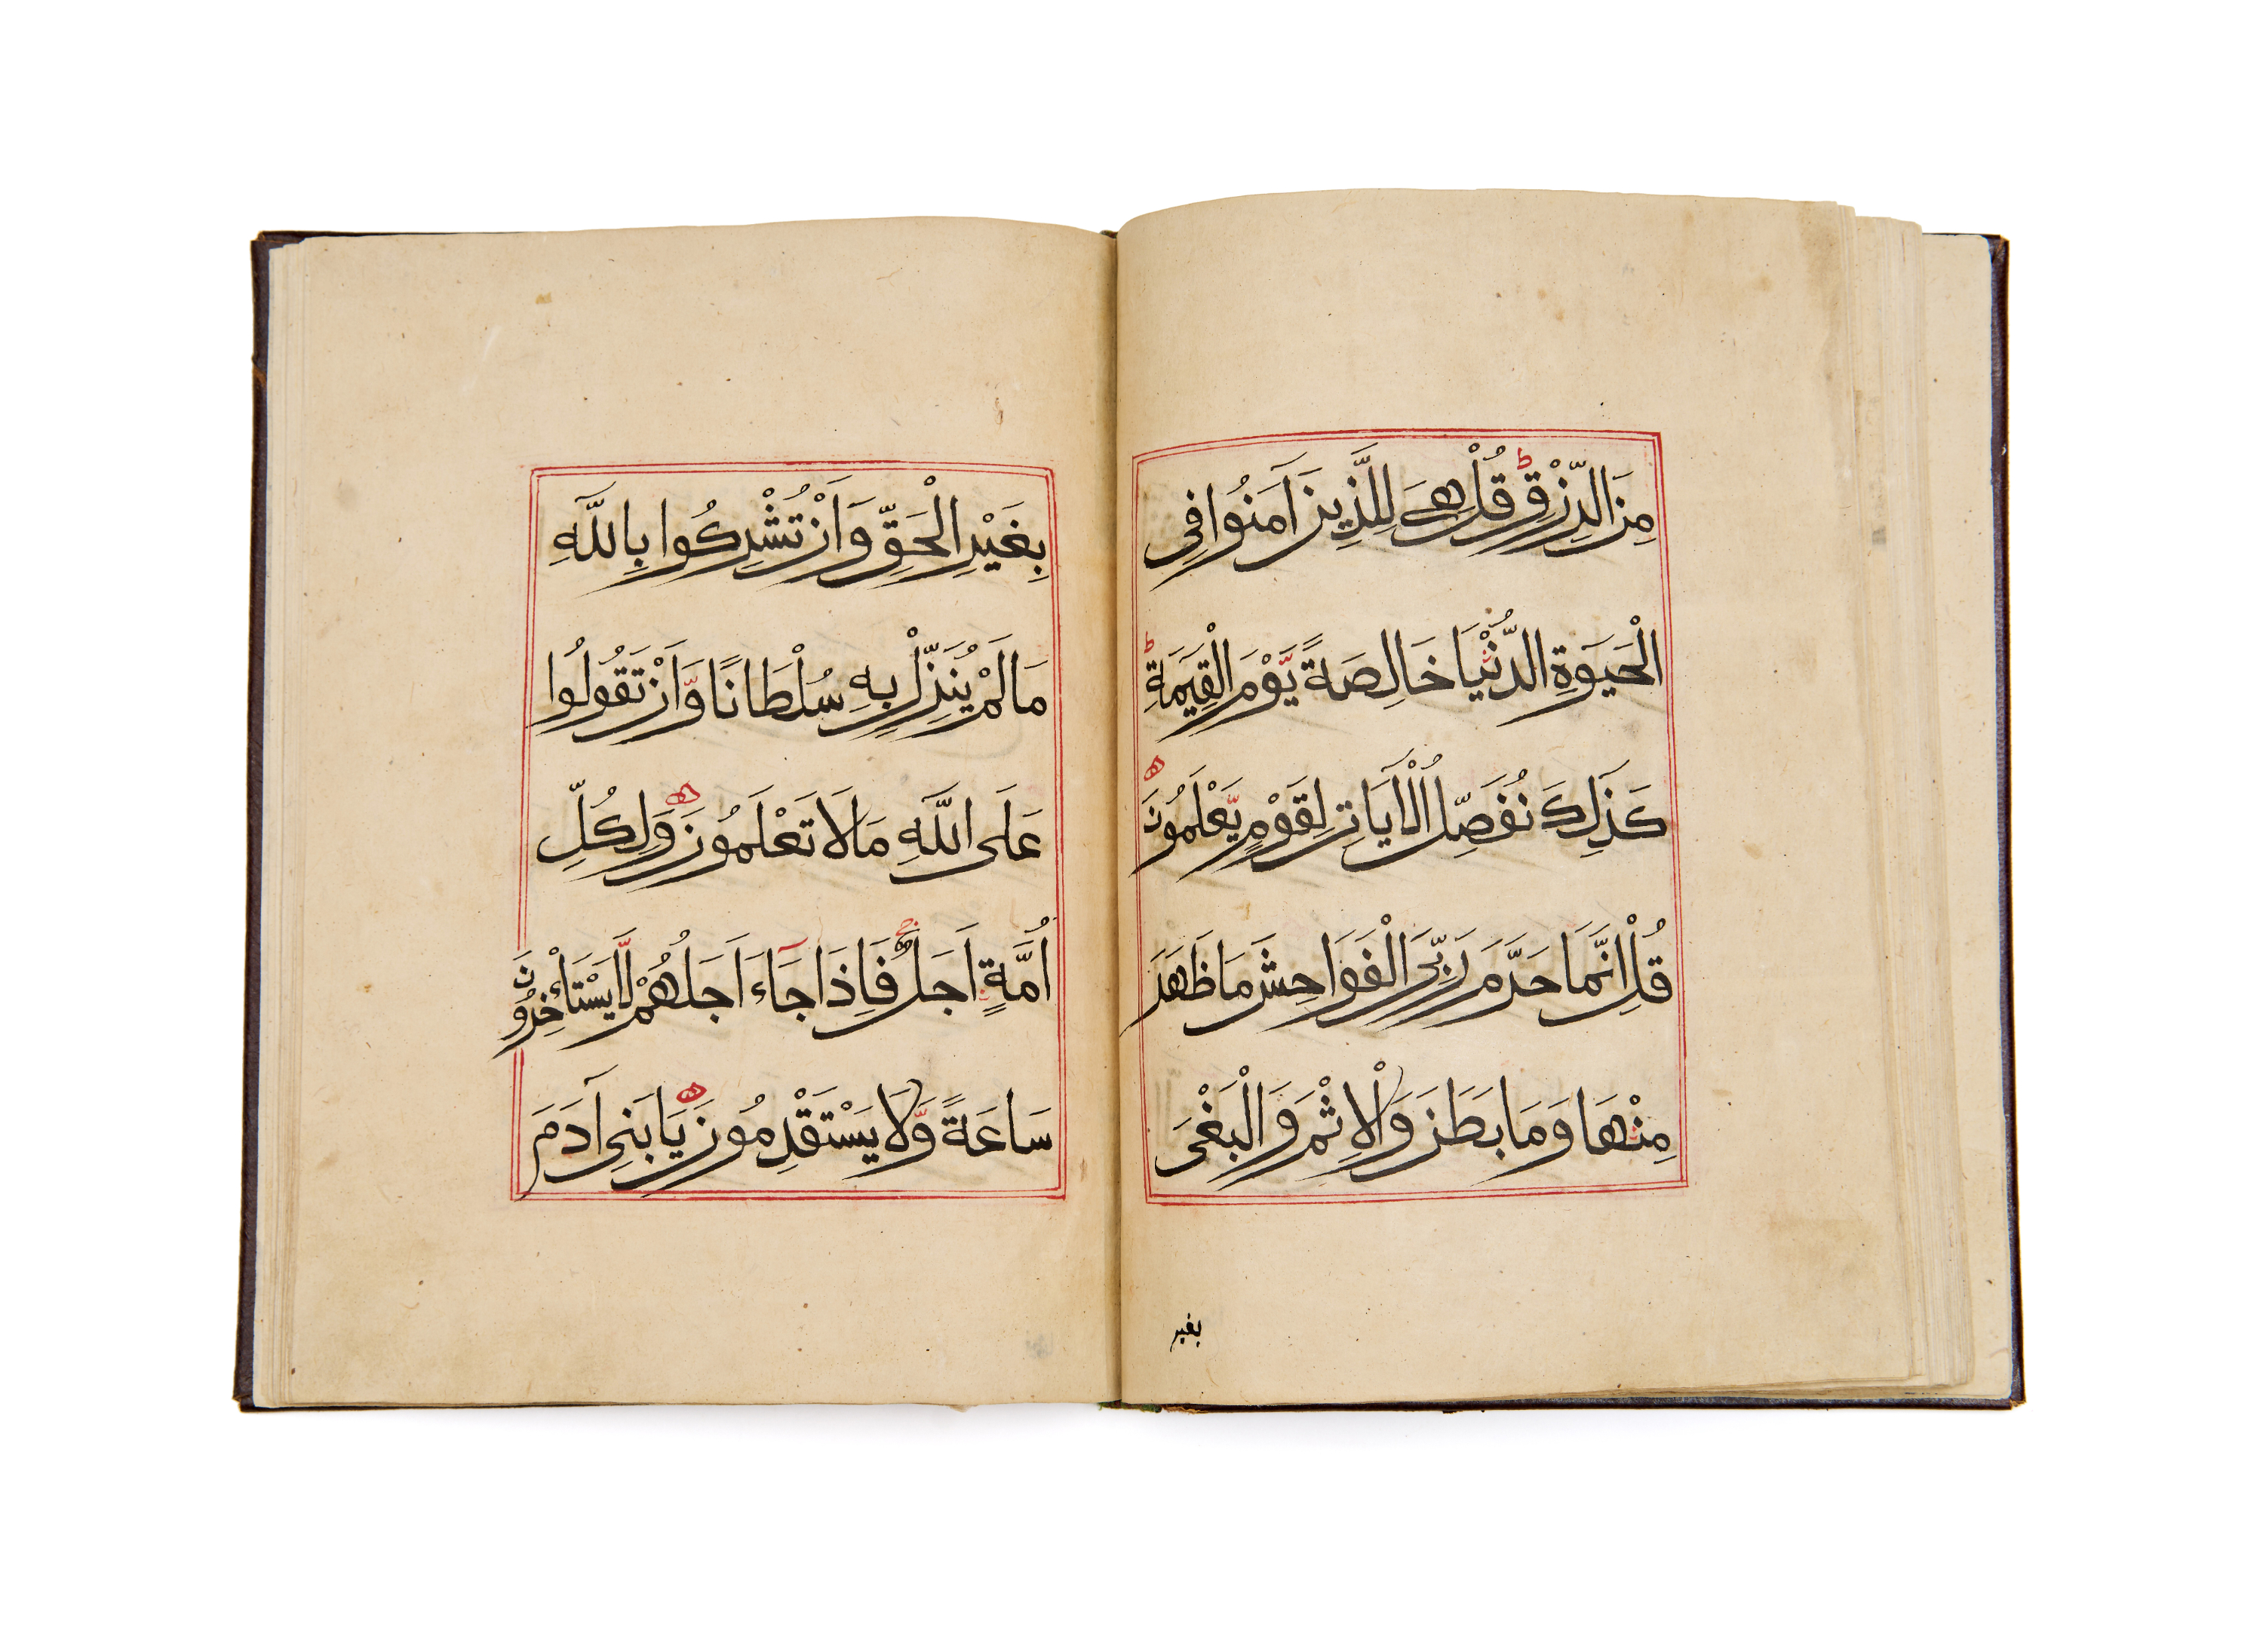 مِنَ الرِّزْقِ ط قُلْ هِيَ لِلَّذِينَ آمَنُوا فِي
الْحَيَوةِ الدُّنْيَا خَالِصَةً يَّوْمَ الْقِيَمَةِ ط
كَذَلِكَ نُفَصِّلُ الْآيَاتِ لِقَوْمٍ يَّعْلَمُونَ ه
قُلْ اِنَّمَا حَرَّمَ رَبِّيَ الْفَوَاحِشَ مَا ظَهَرَ
مِنْهَا وَمَا بَطَنَ وَالْاِثْمَ وَالْبَغْيَ
بغير
بِغَيْرِ الْحَقِّ وَاَنْ تُشْرِكُوا بِاللَّهِ
مَا لَمْ يُنَزِّلْ بِهِ سُلْطَانًا وَّاَنْ تَقُولُوا
عَلَى اللَّهِ مَا لَا تَعْلَمُونَ ه وَلِكُلِّ
اُمَّةٍ اَجَلٌ ج فَاِذَا جَآءَ اَجَلُهُمْ لَا يَسْتَاْخِرُونَ
سَاعَةً وَّلَا يَسْتَقْدِمُونَ ه يَا بَنِي آدَمَ